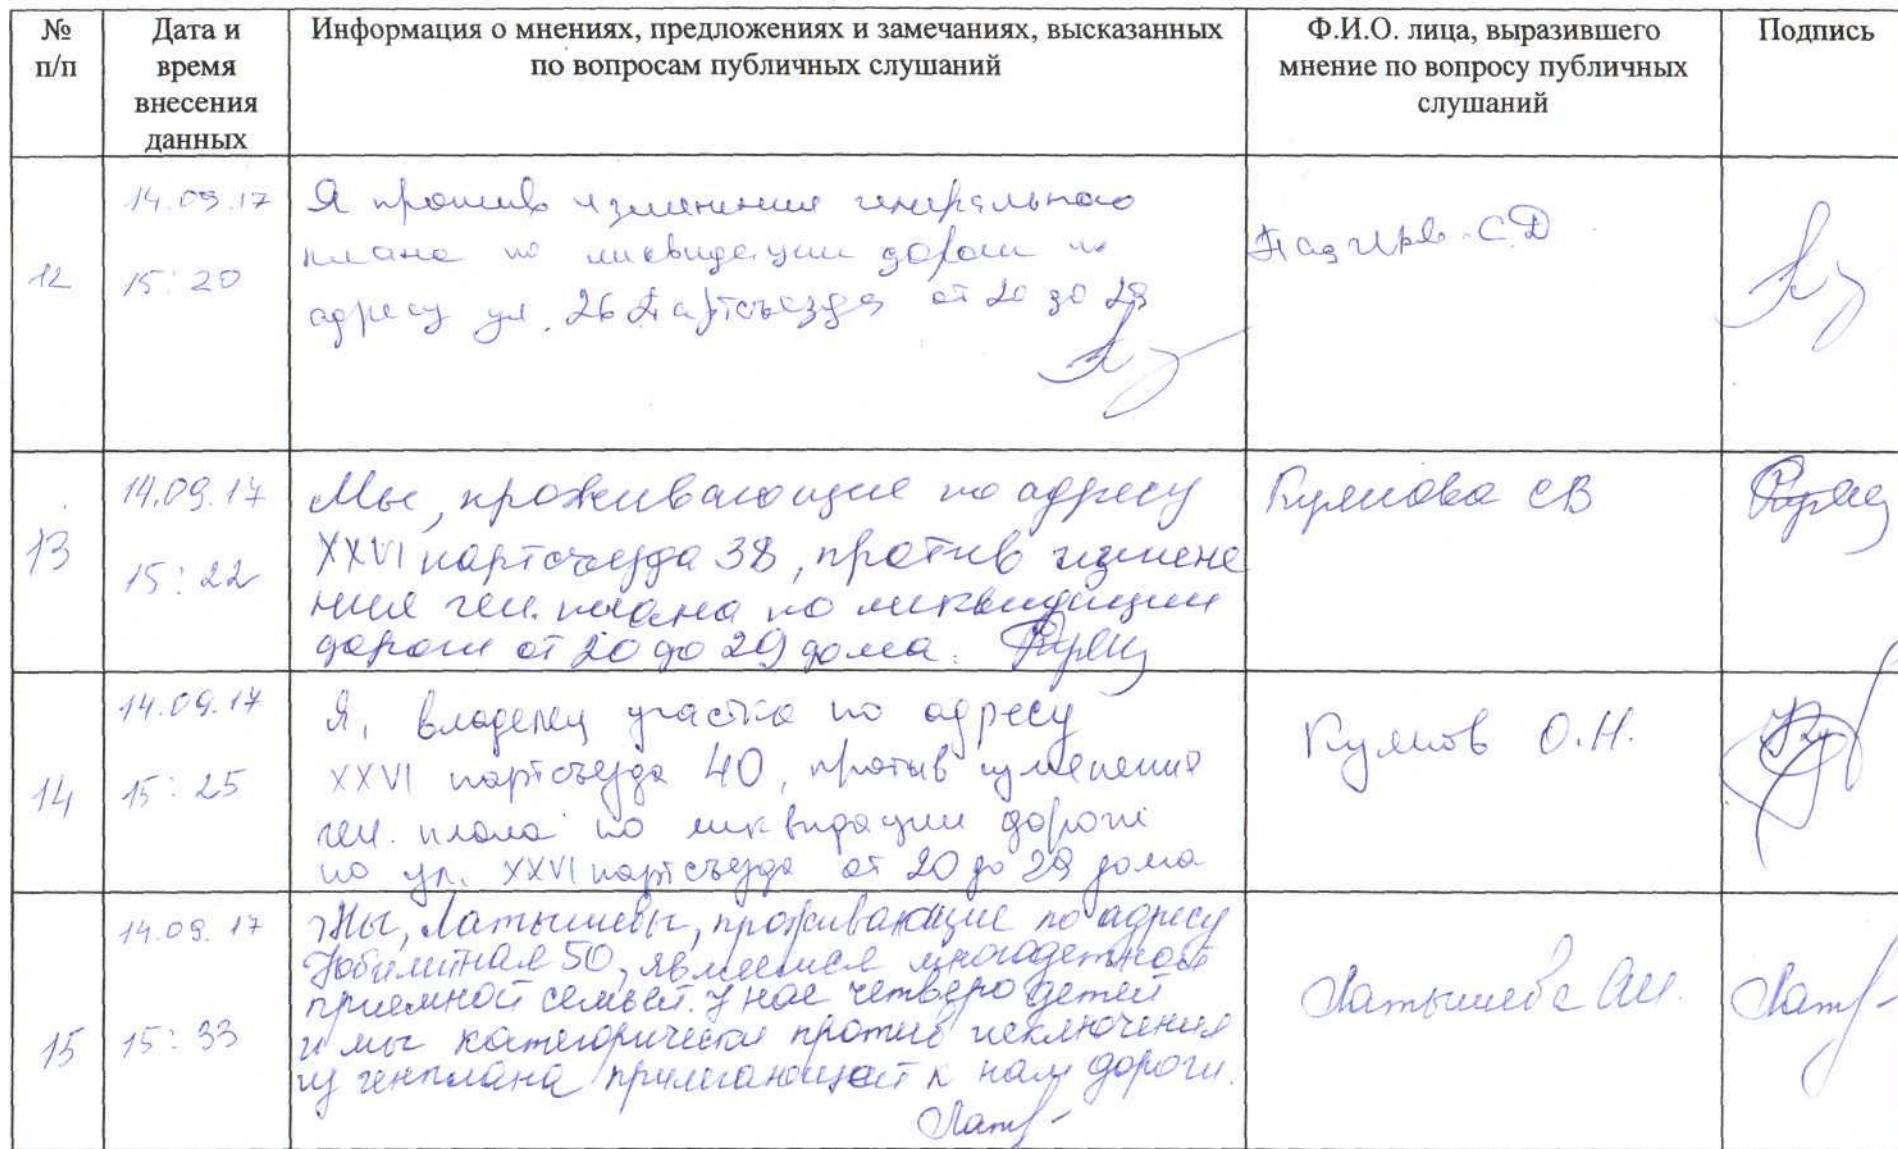 № п/п
Дата и время внесения данных
Информация о мнениях, предложениях и замечаниях, высказанных
по вопросам публичных слушаний
Ф.И.О. лица, выразившего
мнение по вопросу публичных
слушаний
Подпись
12
14.09.17
15:20
Я против изменения генерального
плана по ликвидации дороги по
адресу ул. 26 Партсъезда от 20 до 29
С.Д
13
14.09.17
15:22
Мы, проживающие по адресу
XXVI партсъезда 38, против измене
ния ген. плана по ликвидации
дороги от 20 до 29 дома.
СВ
14
14.09.17
15:25
Я, владелец участка по адресу
XXVI партсъезда 40, против изменения
ген. плана по ликвидации дороги
по ул. XXVI партсъезда от 20 до 29 дома
О.Н.
15
14.09.17
15:33
Мы, Латышевы, проживающие по адресу
Юбилейная 50, являемся многодетной
приемной семьей. У нас четверо детей
и мы категорически против исключения
из генплана прилегающей к нам дороги.
Латышева